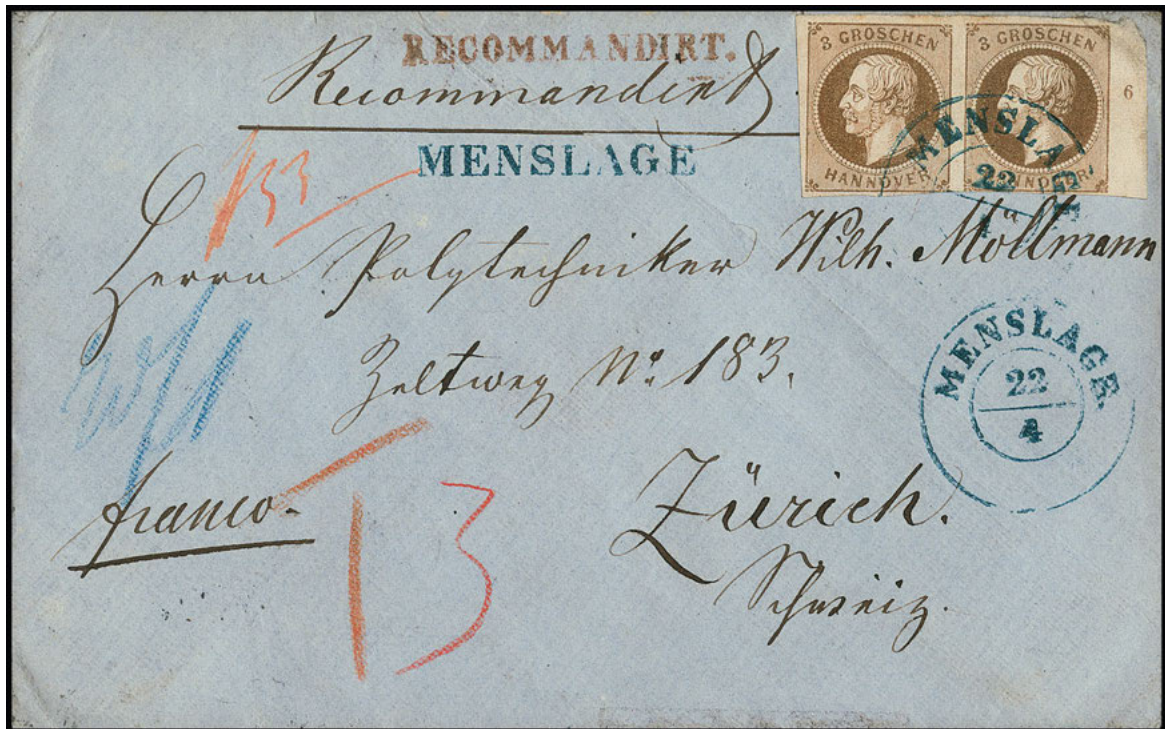 RECOMMANDIRT.
Recommandirt
3 GROSCHEN
HANNOVER
3 GROSCHEN
6
MENSLAGE
22
MENSLAGE
133
Herrn Polytechniker Wilh. Möllmann
Zeltweg No. 183.
MENSLAGE.
22
4
franco.
13
Zürich.
Schweiz.